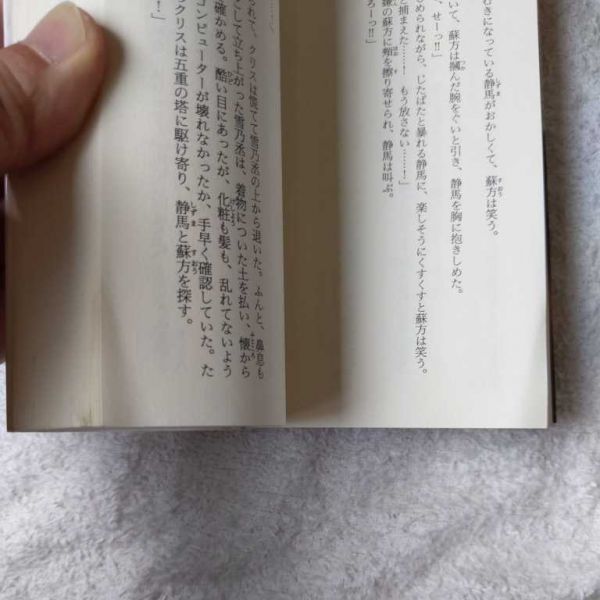 むきになっている静馬がおかしくて、蘇方は笑う。
、せーっ!!」
いて、蘇方は掴んだ腕をぐいと引き、静馬を胸に抱きしめた。
められながら、じたばたと暴れる静馬に、楽しそうにくすくすと蘇方は笑う。
と捕まえた……! もう放さない……!」
嫌の蘇方に頬を擦り寄せられ、静馬は叫ぶ。
ろーっ!!」
られて、クリスは慌てて雪乃丞の上から退いた。ふんと、鼻息も
して立ち上がった雪乃丞は、着物についた土を払い、懐から
確かめる。酷い目にあったが、化粧も髪も、乱れてないよう
コンピューターが壊れなかったか、手早く確認していた。た
クリスは五重の塔に駆け寄り、静馬と蘇方を探す。
!」